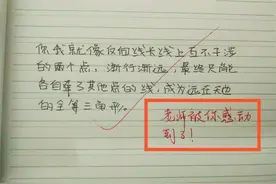 你我就像仅仅线长线上互不干涉
的两个点，渐行渐远，最终只能
各自牵了其他点的线，成为远在天边
的全等三角形。
老师被你感动
到了！